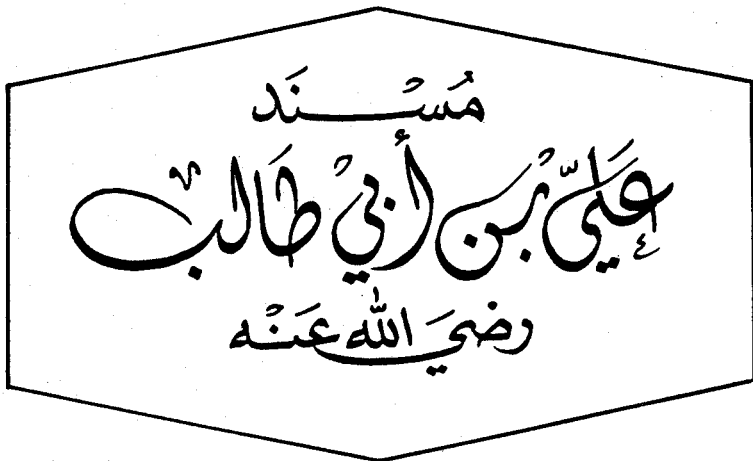 مُسْنَد
عَلِيّ بْن أَبِيْ طَالب
رضيَ اللّٰه عَنْه